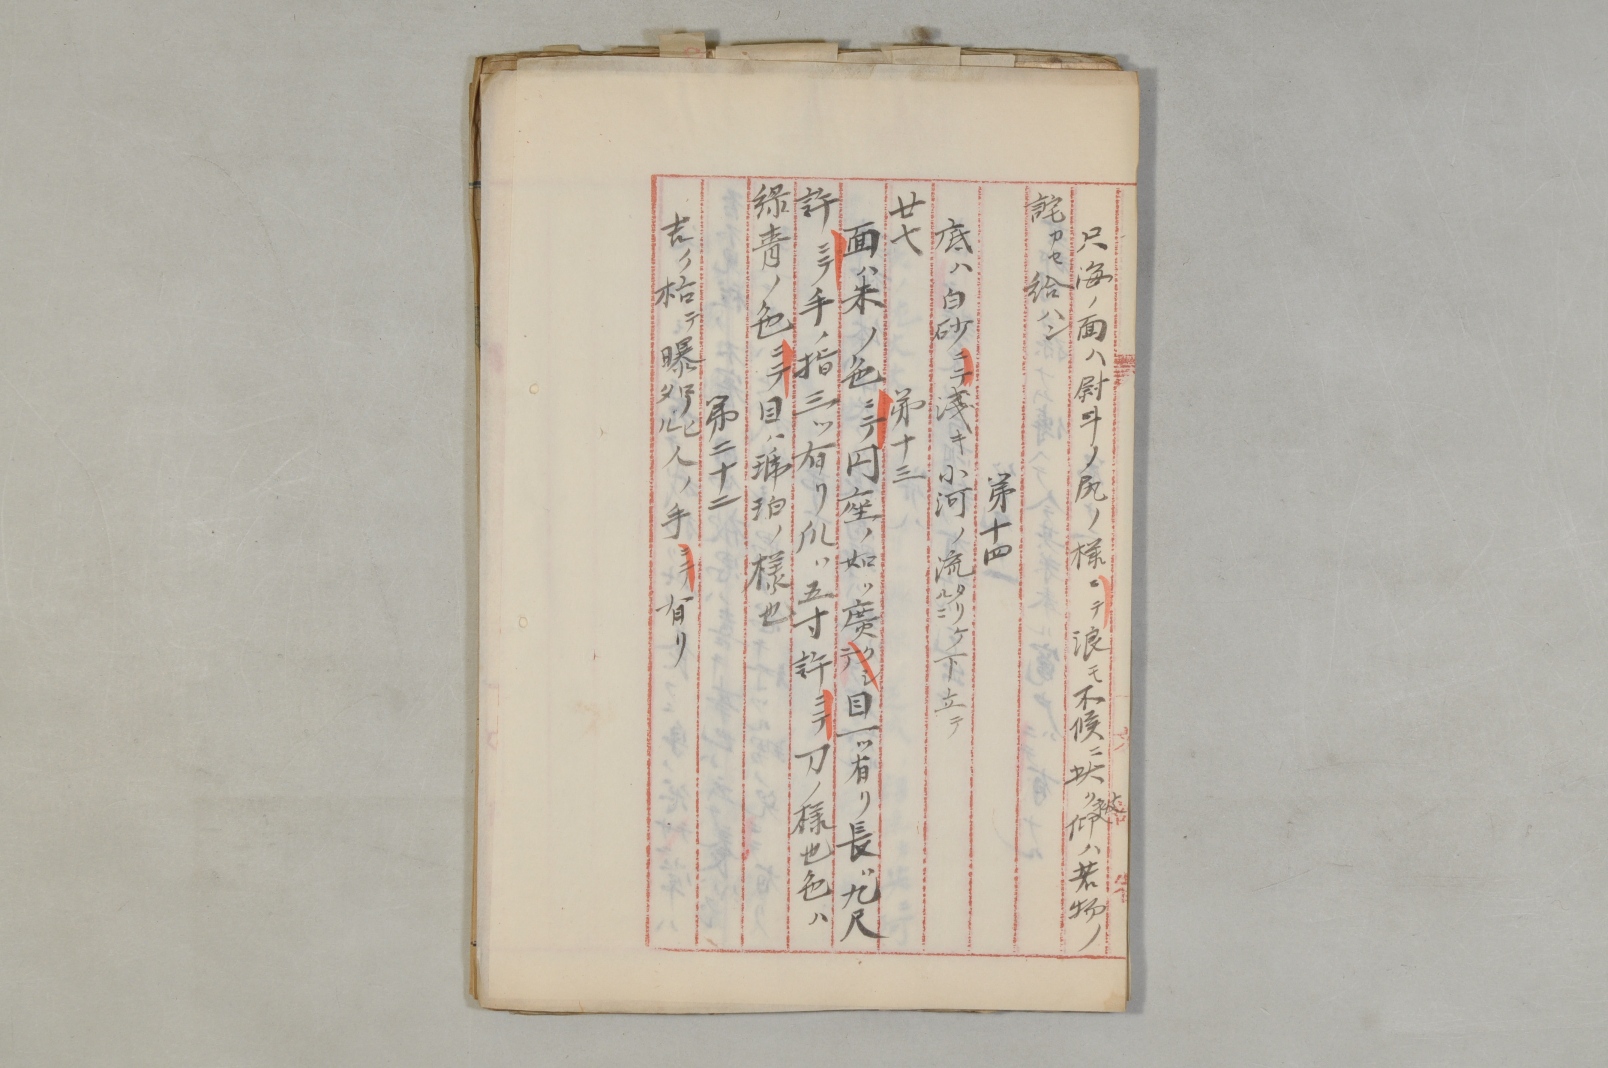 只海ノ面ハ尉斗ノ尻ノ様ニテ浪モ不候ニ此ク被仰ハ若物ノ
詫カセ給ハシ
第十四
底ハ白砂ニテ浅キ小河ノ流タリケルニ下立テ
廿七 第十三
面ハ朱ノ色ニテ円座ノ如ッ廣クシ目一ッ有リ長ハ九尺
許ニテ手ノ指三ッ有リ爪ハ五寸許ニテ刀ノ様也色ハ
緑青ノ色ニテ目ハ琥珀ノ様也
第二十二
吉ク枯テ曝タル人ノ手ニテ有リ